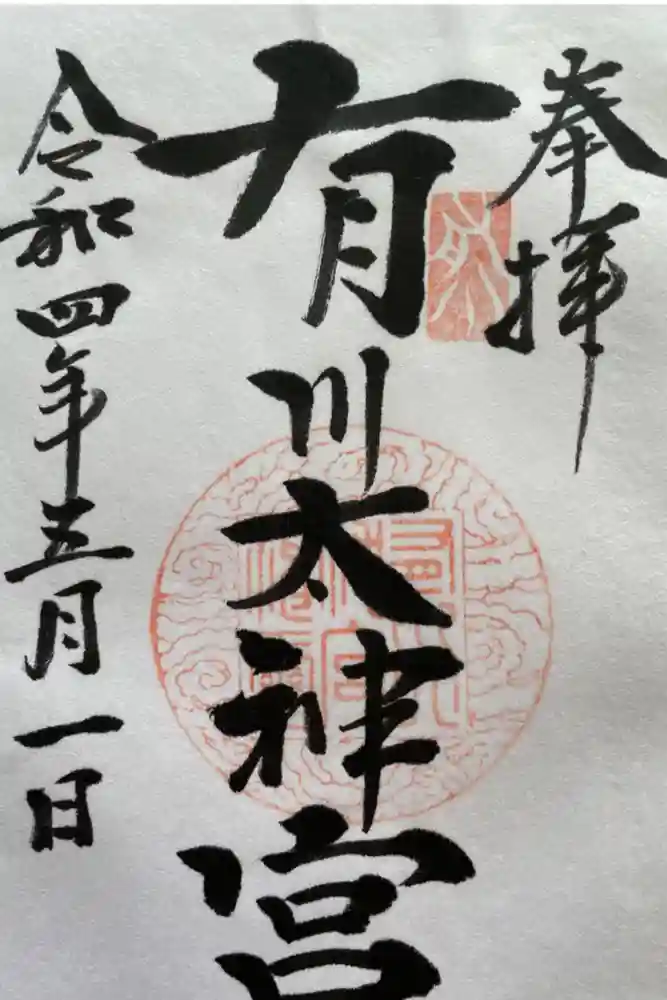 奉拝
有川太神宮
令和四年五月一日